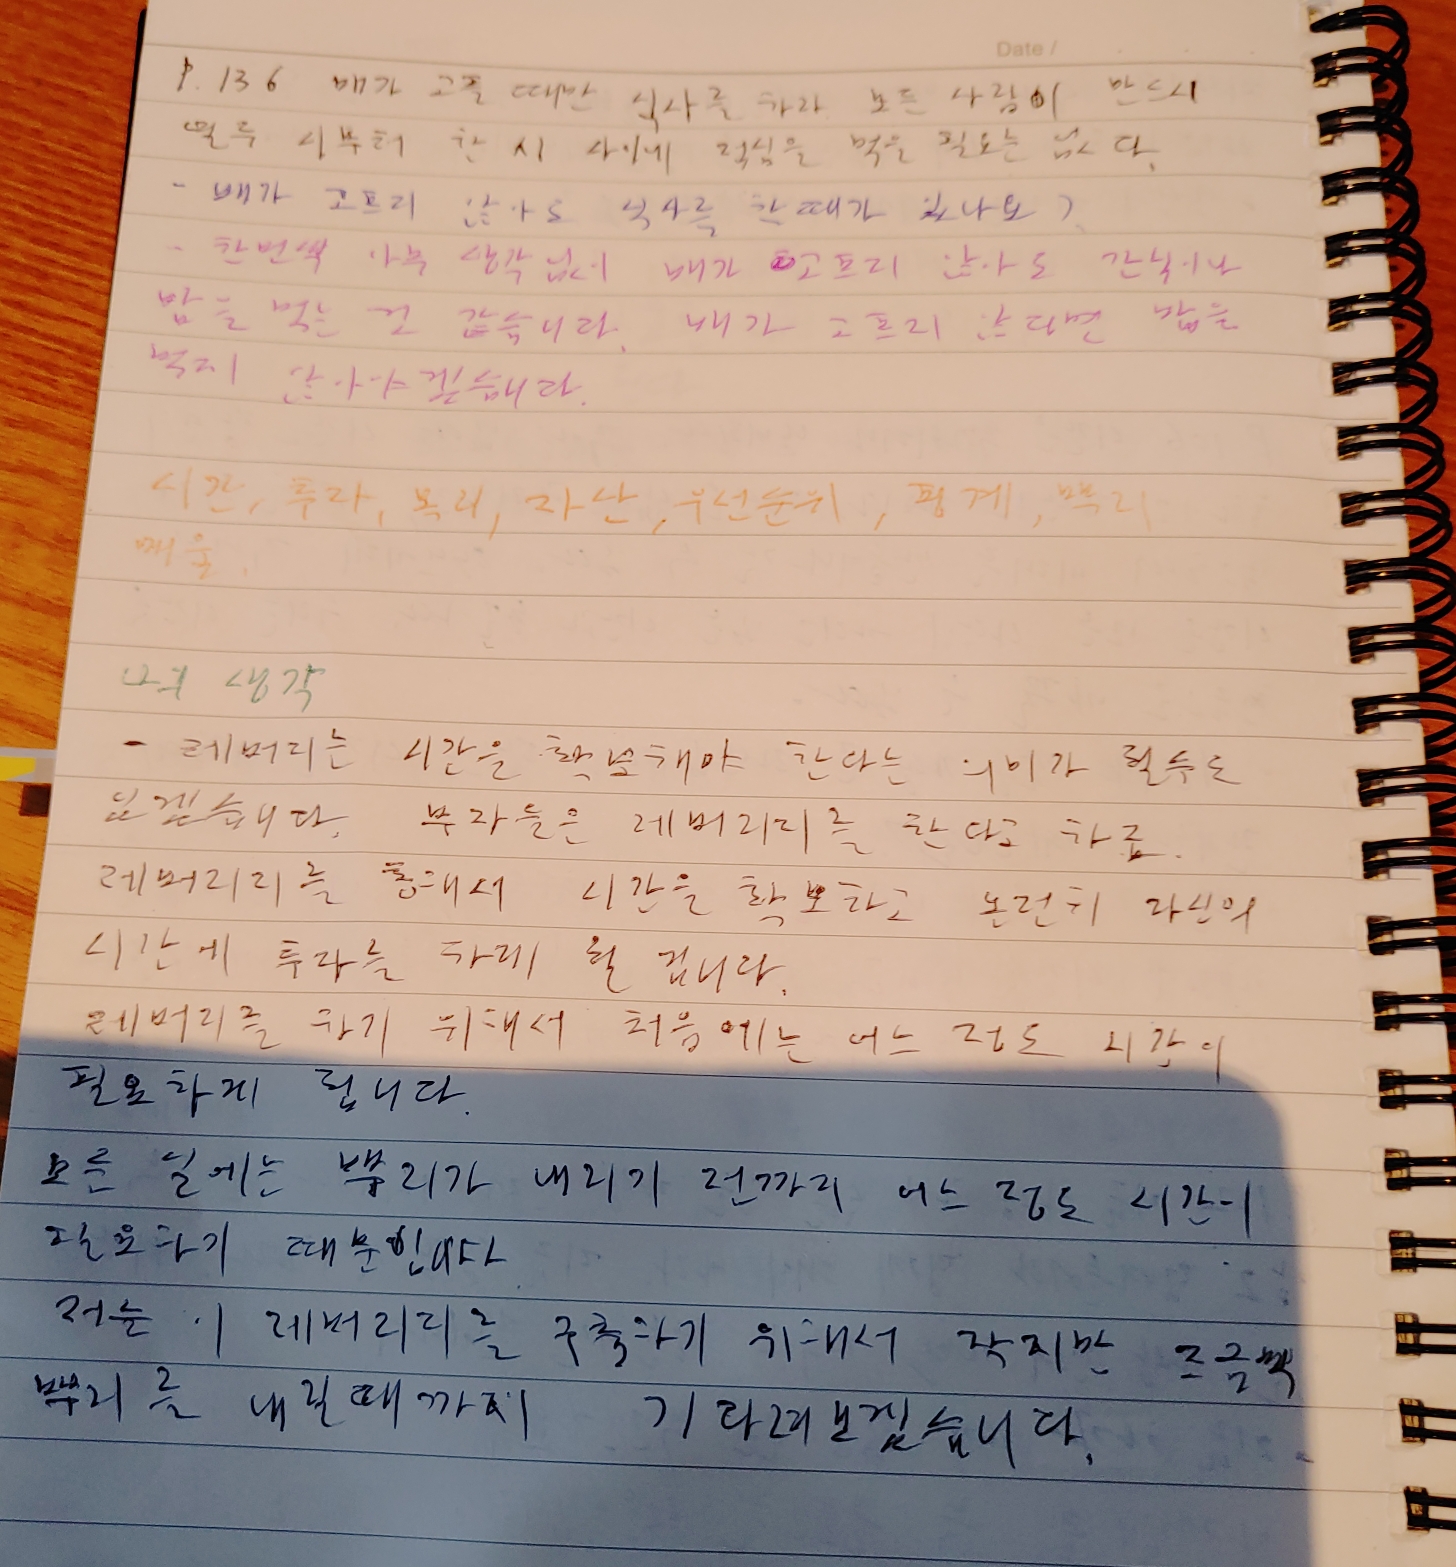 Date /
P. 136 배가 고플 때만 식사를 하라 모든 사람이 반드시
열두 시부터 한 시 사이에 점심을 먹을 필요는 없다.
- 배가 고프지 않아도 식사를 한때가 있나요?
- 한번씩 아무 생각없이 배가 고프지 않아도 간식이나
밥을 먹는 것 같습니다. 배가 고프지 않다면 밥을
먹지 않아야겠습니다.
시간, 투자, 복리, 자산, 우선순위, 핑계, 뿌리
매울,
나의 생각
- 레버리는 시간을 확보해야 한다는 의미가 될수도
있겠습니다. 부자들은 레버리지를 한다고 하죠.
레버리지를 통해서 시간을 확보하고 온전히 자신의
시간에 투자를 하게 될 겁니다.
레버리를 하기 위해서 처음에는 어느 정도 시간이
필요하게 됩니다.
모든 일에는 뿌리가 내리기 전까지 어느 정도 시간이
필요하기 때문입니다.
저는 이 레버리지를 구축하기 위해서 작지만 조금씩
뿌리를 내릴때까지 기다려보겠습니다.